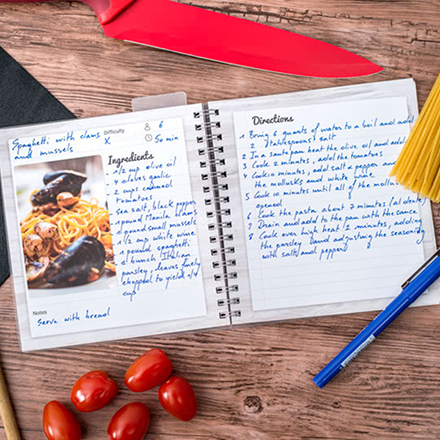 Spaghetti with clams
and mussels
Difficulty
X
6
50 min
Ingredients
1/2 cup olive oil
4 cloves garlic
2 cups canned
tomatoes
Sea salt, black pepper
1 pound Manila clams
1 pound small mussels
1/2 cup white wine
1 pound spaghetti
1 bunch Italian
parsley, leaves finely
chopped to yield 1/4
cup
Notes
Serve with bread
Directions
1 Bring 6 quarts of water to a boil and add
2 tablespoons salt
2 In a saute pan heat the olive oil and add
3 Cook 2 minutes, add the tomatoes
4 Cook 10 minutes, add salt and pepper and
the mollusks and white wine
5 Cook 10 minutes until all of the mollusks
opened
6 Cook the pasta about 7 minutes (al dente)
7 Drain and add to the pan with the sauce
8 Cook over high heat 2 minutes, adding
the parsley and adjusting the seasoning
with salt and pepper